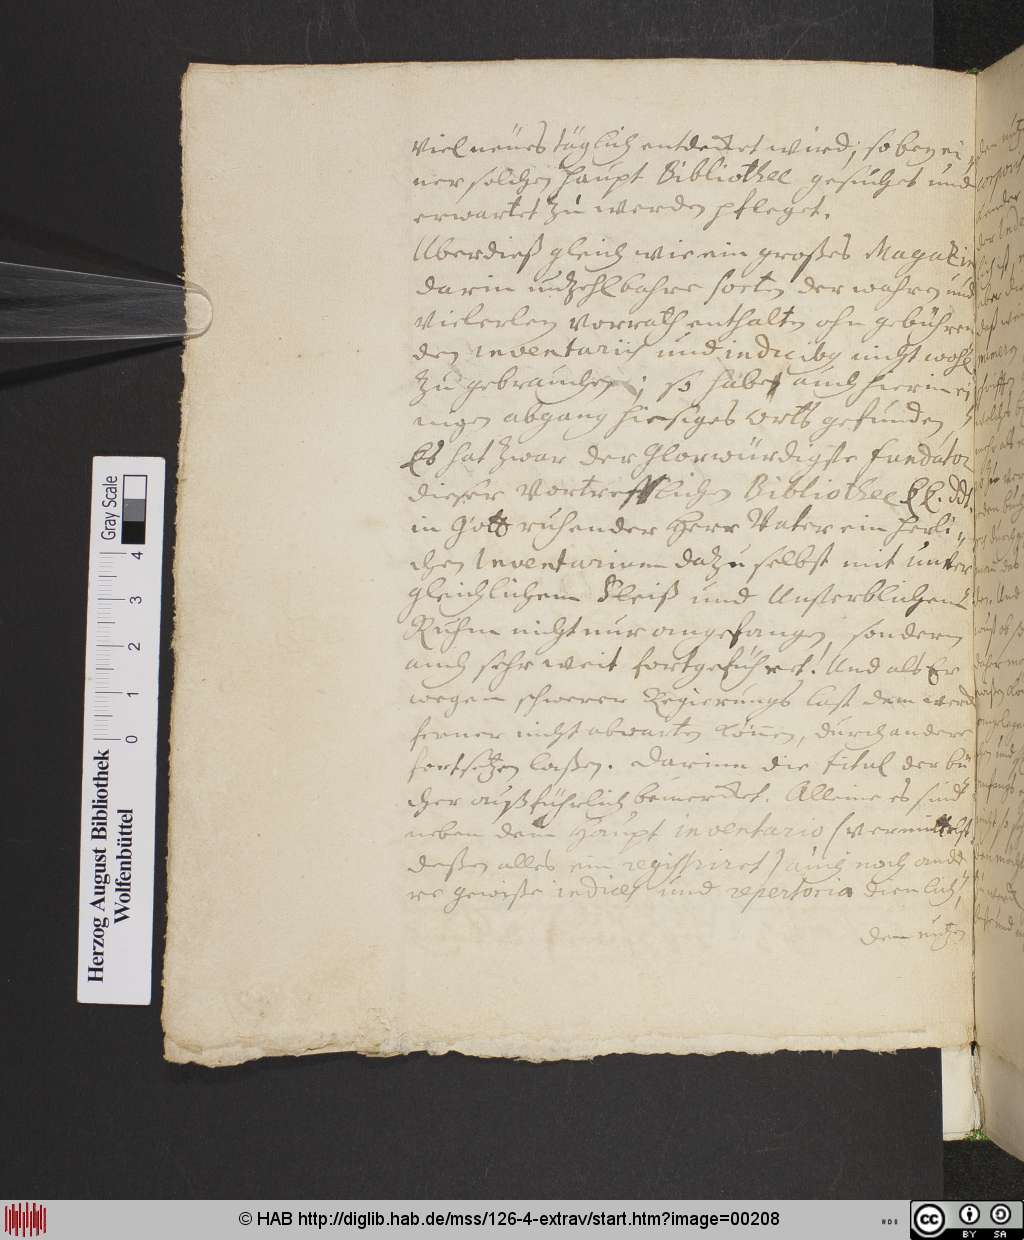 viel neües täglich entdecket wird, so bey ei-
ner solchen haupt Bibliothec gesuchet und
erwartet zu werden pfleget.
Uberdieß gleich wie ein großes Magazin
darin unzehlbahre sorten der wahren und
vielerley vorrath enthalten ohn gebühren
den inventariis und indicibg nicht wohl
zu gebrauchen; so habe auch hierin ei
nigen abgang hiesiges Orts gefunden
Es hat zwar der Glorwürdigste fundator
dieser vortrefflichen Bibliothec EE. DDt.
in Gott ruhender Herr Vater ein herli-
chen Inventarium dazu selbst mit unver
gleichlichem Fleiß und Unsterblichem
Ruhm nicht nur angefangen, sondern
auch sehr weit fortgeführet! Und als Er
wegen schwerer Regierungs last dem werck
ferner nicht abwarten können, durch andere
fortsetzen laßen. Darinn die titul der bü
cher außführlich bemercket. Alleine es sind
neben dem Haupt inventario (vermittelst
deßen alles ein registriret) auch noch ande
re gewiße indices und repertoria dienlich,
den nutzen
Herzog August Bibliothek
Wolfenbüttel
0 1 2 3 4
Gray Scale
© HAB http://diglib.hab.de/mss/126-4-extrav/start.htm?image=00208
cc BY SA